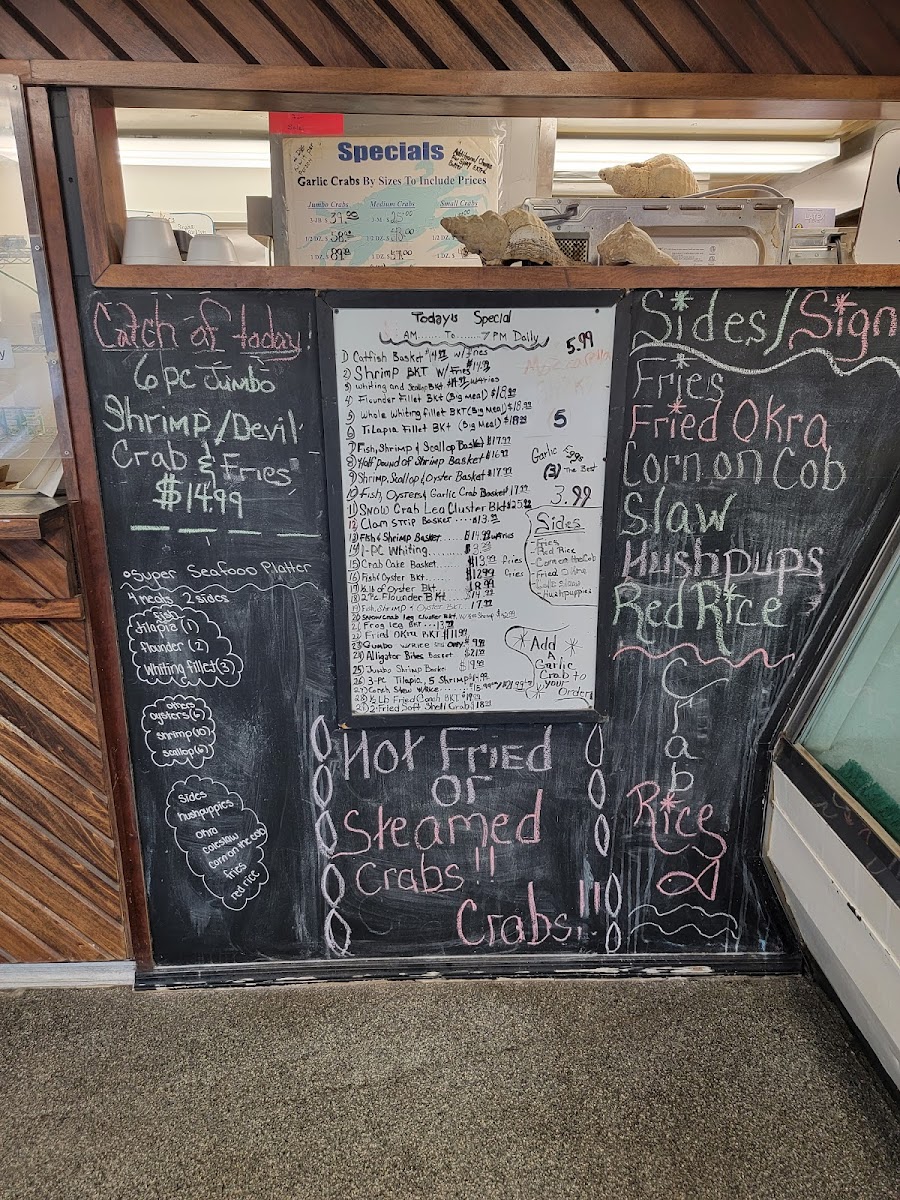 Specials
Garlic Crabs By Sizes To Include Prices
Jumbo Crabs Medium Crabs Small Crabs
Catch of today
6 pc Jumbo
Shrimp/Devil
Crab & Fries
$14.99
Super Seafood Platter
4 meats 2 sides
fish
tilapia (1)
flounder (2)
Whiting fillet (3)
others
oysters (6)
shrimp (10)
scallop (6)
sides
hushpuppies
okra
coleslaw
corn on the cob
fries
red rice
Today's Special
AM To 7 PM Daily
1) Catfish Basket $14.99 w/ Fries
2) Shrimp BKT w/ Fries $14.99
3) Whiting and Scallop BKT
4) Flounder Fillet BKT (Big Meal) $18.99
5) Whole Whiting Fillet BKT (Big Meal) $18.99
6 Tilapia Fillet BKT (Big Meal) $18.99
7 Fish, Shrimp & Scallop Basket $17.99
8 Half pound of Shrimp Basket $16.99
9 Shrimp, Scallop & Oyster Basket $17.99
10 Fish, Oysters & Garlic Crab Basket $17.99
11 Snow Crab Leg Cluster BKT $25.99
12 Clam Strip Basket .... $13.99
13 Fish & Shrimp Basket $14.99 w/Fries
14) 1-PC Whiting
15 Crab Cake Basket $13.99 Fries
16 Fish/Oyster BKT $12.99 Fries
17 ½ lb of Oyster BKT $18.99
18 2 Pc. Flounder BKT $14.99
19 Fish, Shrimp & Oyster BKT 17.99
20 Snow crab leg Cluster BKT
21 Frog leg BKT
22 Fried Okra BKT $11.99
23 Gumbo w/Rice
24 Alligator Bites Basket $21.99
25 Jumbo Shrimp Basket $19.99
26 3-PC Tilapia, 5 Shrimp
27 Conch Stew w/Rice
28 ½ Lb Fried Conch BKT
29 2-Fried Soft Shell Crab
5.99
5
Garlic
(3) The Best
3.99
Sides
- Fries
- Red Rice
- Corn on the Cob
- Fried Okra
- Hushpuppies
Add
A
Garlic
Crab to
your
Order
Hot Fried
or
Steamed
Crabs!!
Crabs!!
Sides/Sign
Fries
Fried Okra
Corn on Cob
Slaw
Hushpups
Red Rice
Crab
Rice